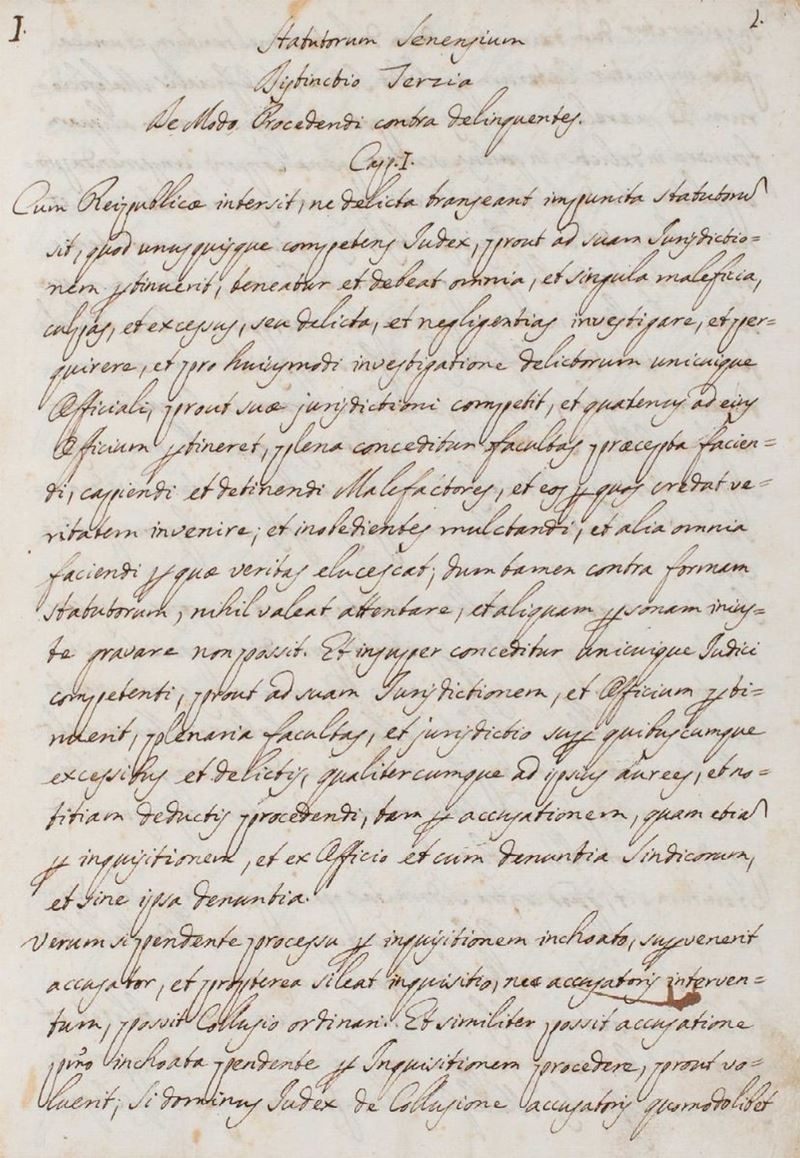 I. 2.
Statutorum Senensium
Distinctio Terzia
De Modo Procedendi contra delinquentes.
Cap. I.
Cum Reipublicæ intersit, ne delicta transeant impunita statutoru
sit, quod unusquisque competens Iudex, prout ad suam Iurisdictio=
nem ptinuerit, teneatur et debeat omnia, et singula maleficia,
culpas, et excessus, seu delicta, et negligentias investigare, et per=
quirere, et pro huiusmodi investigatione delictorum unicuique
Officiali, prout suæ jurisdictioni competit, et quatenus ad eius
Officium ptineret, plena conceditur facultas præcepta facien=
di, capiendi et detinendi Malefactores, et eos p quos credat ve=
ritatem invenire; et inobedientes mulctandi, et alia omnia
faciendi p quæ veritas elucescat; dum tamen contra formam
statutorum, nihil valeat attentare, et aliquam psonam inius=
te gravare non possit. Et insuper conceditur unicuique Iudici
competenti, prout ad suam Iurisdictionem, et Officium pti=
nuerit, plenaria facultas, et jurisdictio sup quibuscumque
excessibus et delictis, qualitercumque ad ipsius aures, et no=
titiam deductis procedendi, tam p accusationem, quam etia
p inquisitionem, et ex Officio et cum denuntia Sindicorum,
et sine ipsa denuntia.
Verum si pendente processu p inquisitionem inchoato, supvenerit
accusator, et propterea sileat inquisitio, nec accusatoris interven=
tum, possit Collusio ordinari. Et similiter possit accusatione
pmo inchoata pendente p Inquisitionem procedere, prout vo=
luerit; Si dominus Iudex de Collusione accusatoris quomodolibet